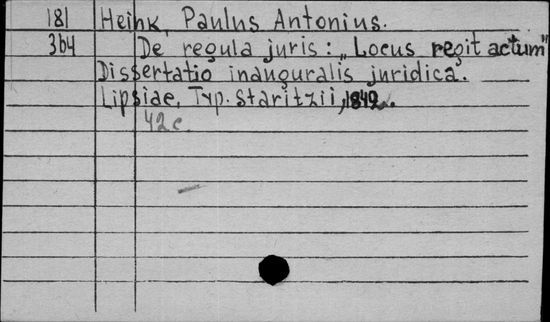 181 Heink, Paulus Antonius.
364 De regula juris: „Locus regit actum"
Dissertatio inauguralis juridica.
Lipsiae, Typ. Staritzii, 1842.
42 c.